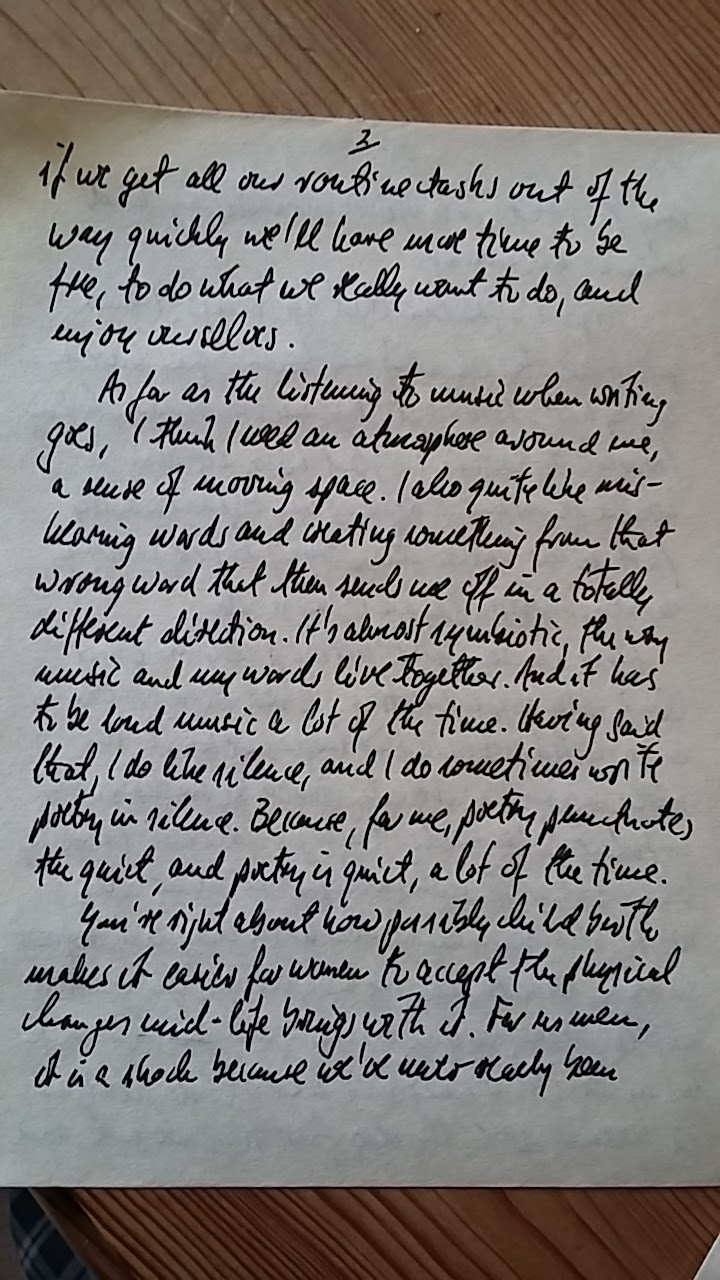 3
if we get all our routine tasks out of the
way quickly we'll have more time to be
free, to do what we really want to do, and
enjoy ourselves.
As far as the listening to music when writing
goes, I think I need an atmosphere around me,
a sense of moving space. I also quite like mis-
hearing words and creating something from that
wrong word that then sends me off in a totally
different direction. It's almost symbiotic, the way
music and my words live together. And it has
to be loud music a lot of the time. Having said
that, I do like silence, and I do sometimes write
poetry in silence. Because, for me, poetry punctuates
the quiet, and poetry is quiet, a lot of the time.
You're right about how possibly child birth
makes it easier for women to accept the physical
changes mid-life brings with it. For us men,
it is a shock because we've never really been